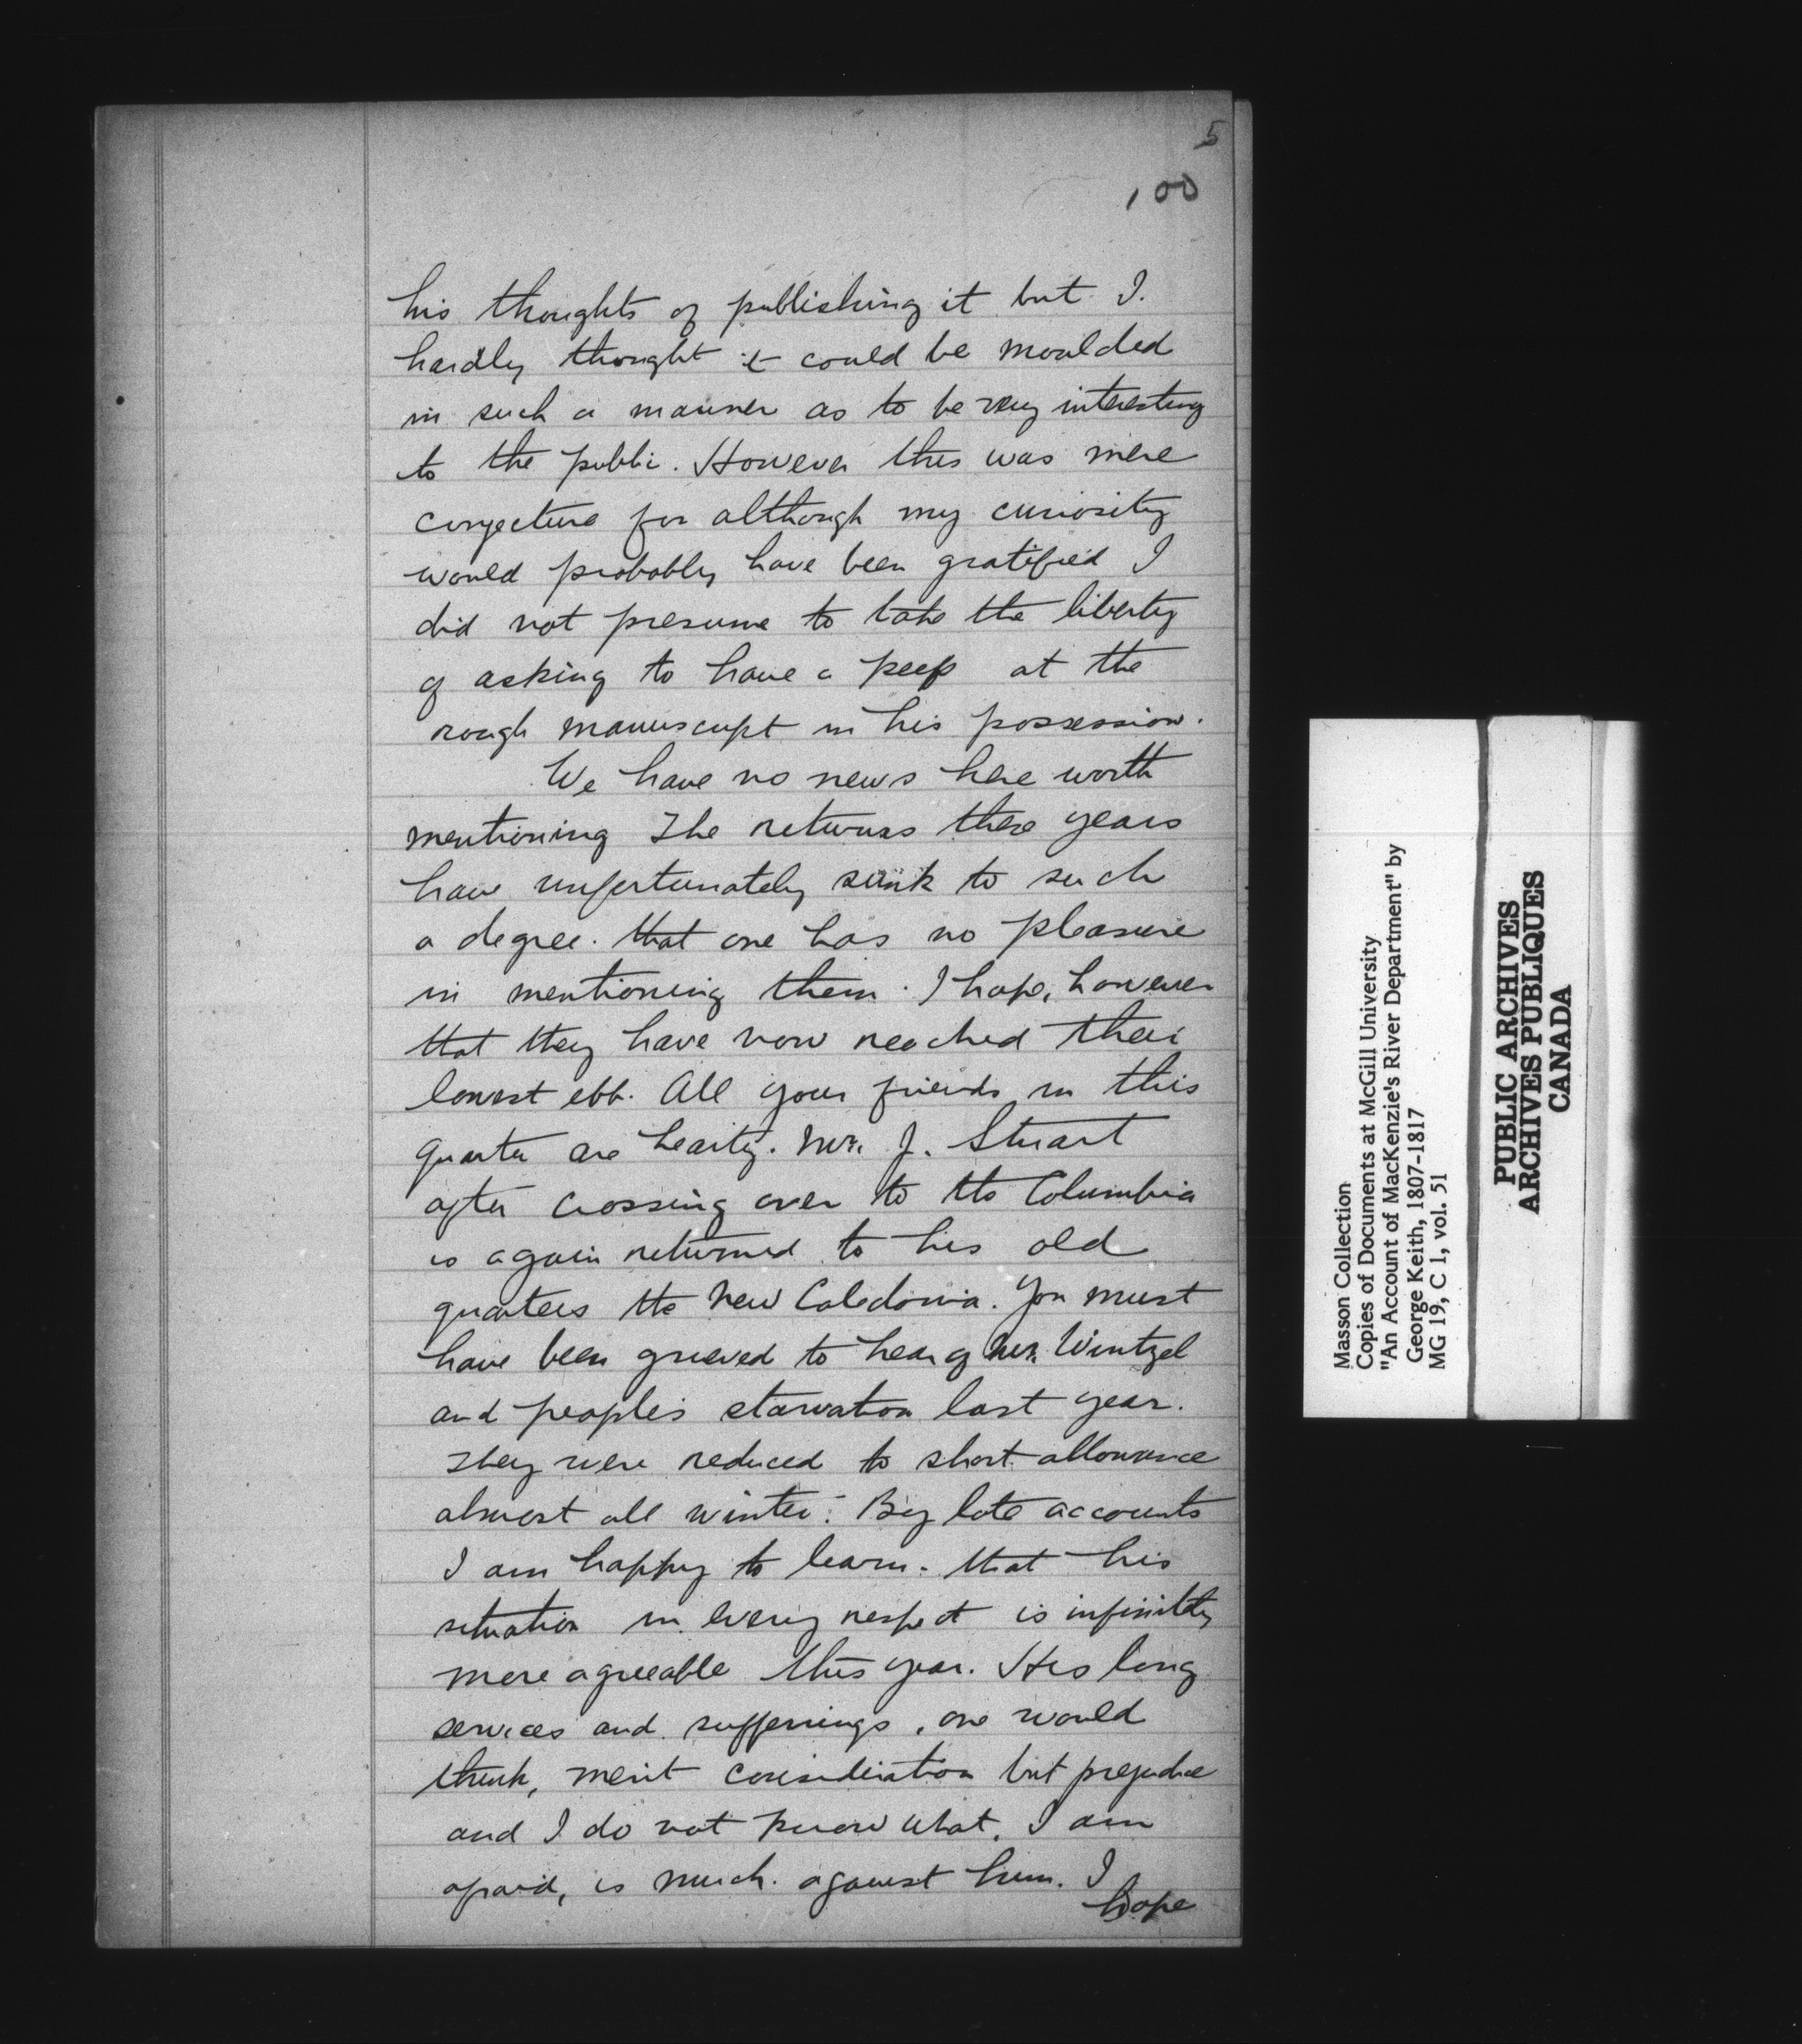 5
100
his thoughts of publishing it but I.
hardly thought it could be moulded
in such a manner as to be very interesting
to the public. However this was mere
conjecture for although my curiosity
would probably have been gratified I
did not presume to take the liberty
of asking to have a peep at the
rough manuscript in his possession.
We have no news here worth
mentioning The returns these years
have unfortunately sunk to such
a degree. that one has no pleasure
in mentioning them. I hope, however
that they have now reached their
lowest ebb. All your friends in this
quarter are hearty. Mr. J. Stuart
after crossing over to the Columbia
is again returned to his old
quarters the New Caledonia. You must
have been grieved to hear of Mr. Wintzel
and people's starvation last year.
They were reduced to short allowance
almost all winter. By late accounts
I am happy to learn. that his
situation in every respect is infinitely
more agreeable this year. His long
services and sufferings, one would
think, merit consideration but prejudice
and I do not know what, I am
afraid, is much against him. I
hope
Masson Collection
Copies of Documents at McGill University
"An Account of MacKenzie's River Department" by
George Keith, 1807-1817
MG 19, C 1, vol. 51
PUBLIC ARCHIVES
ARCHIVES PUBLIQUES
CANADA